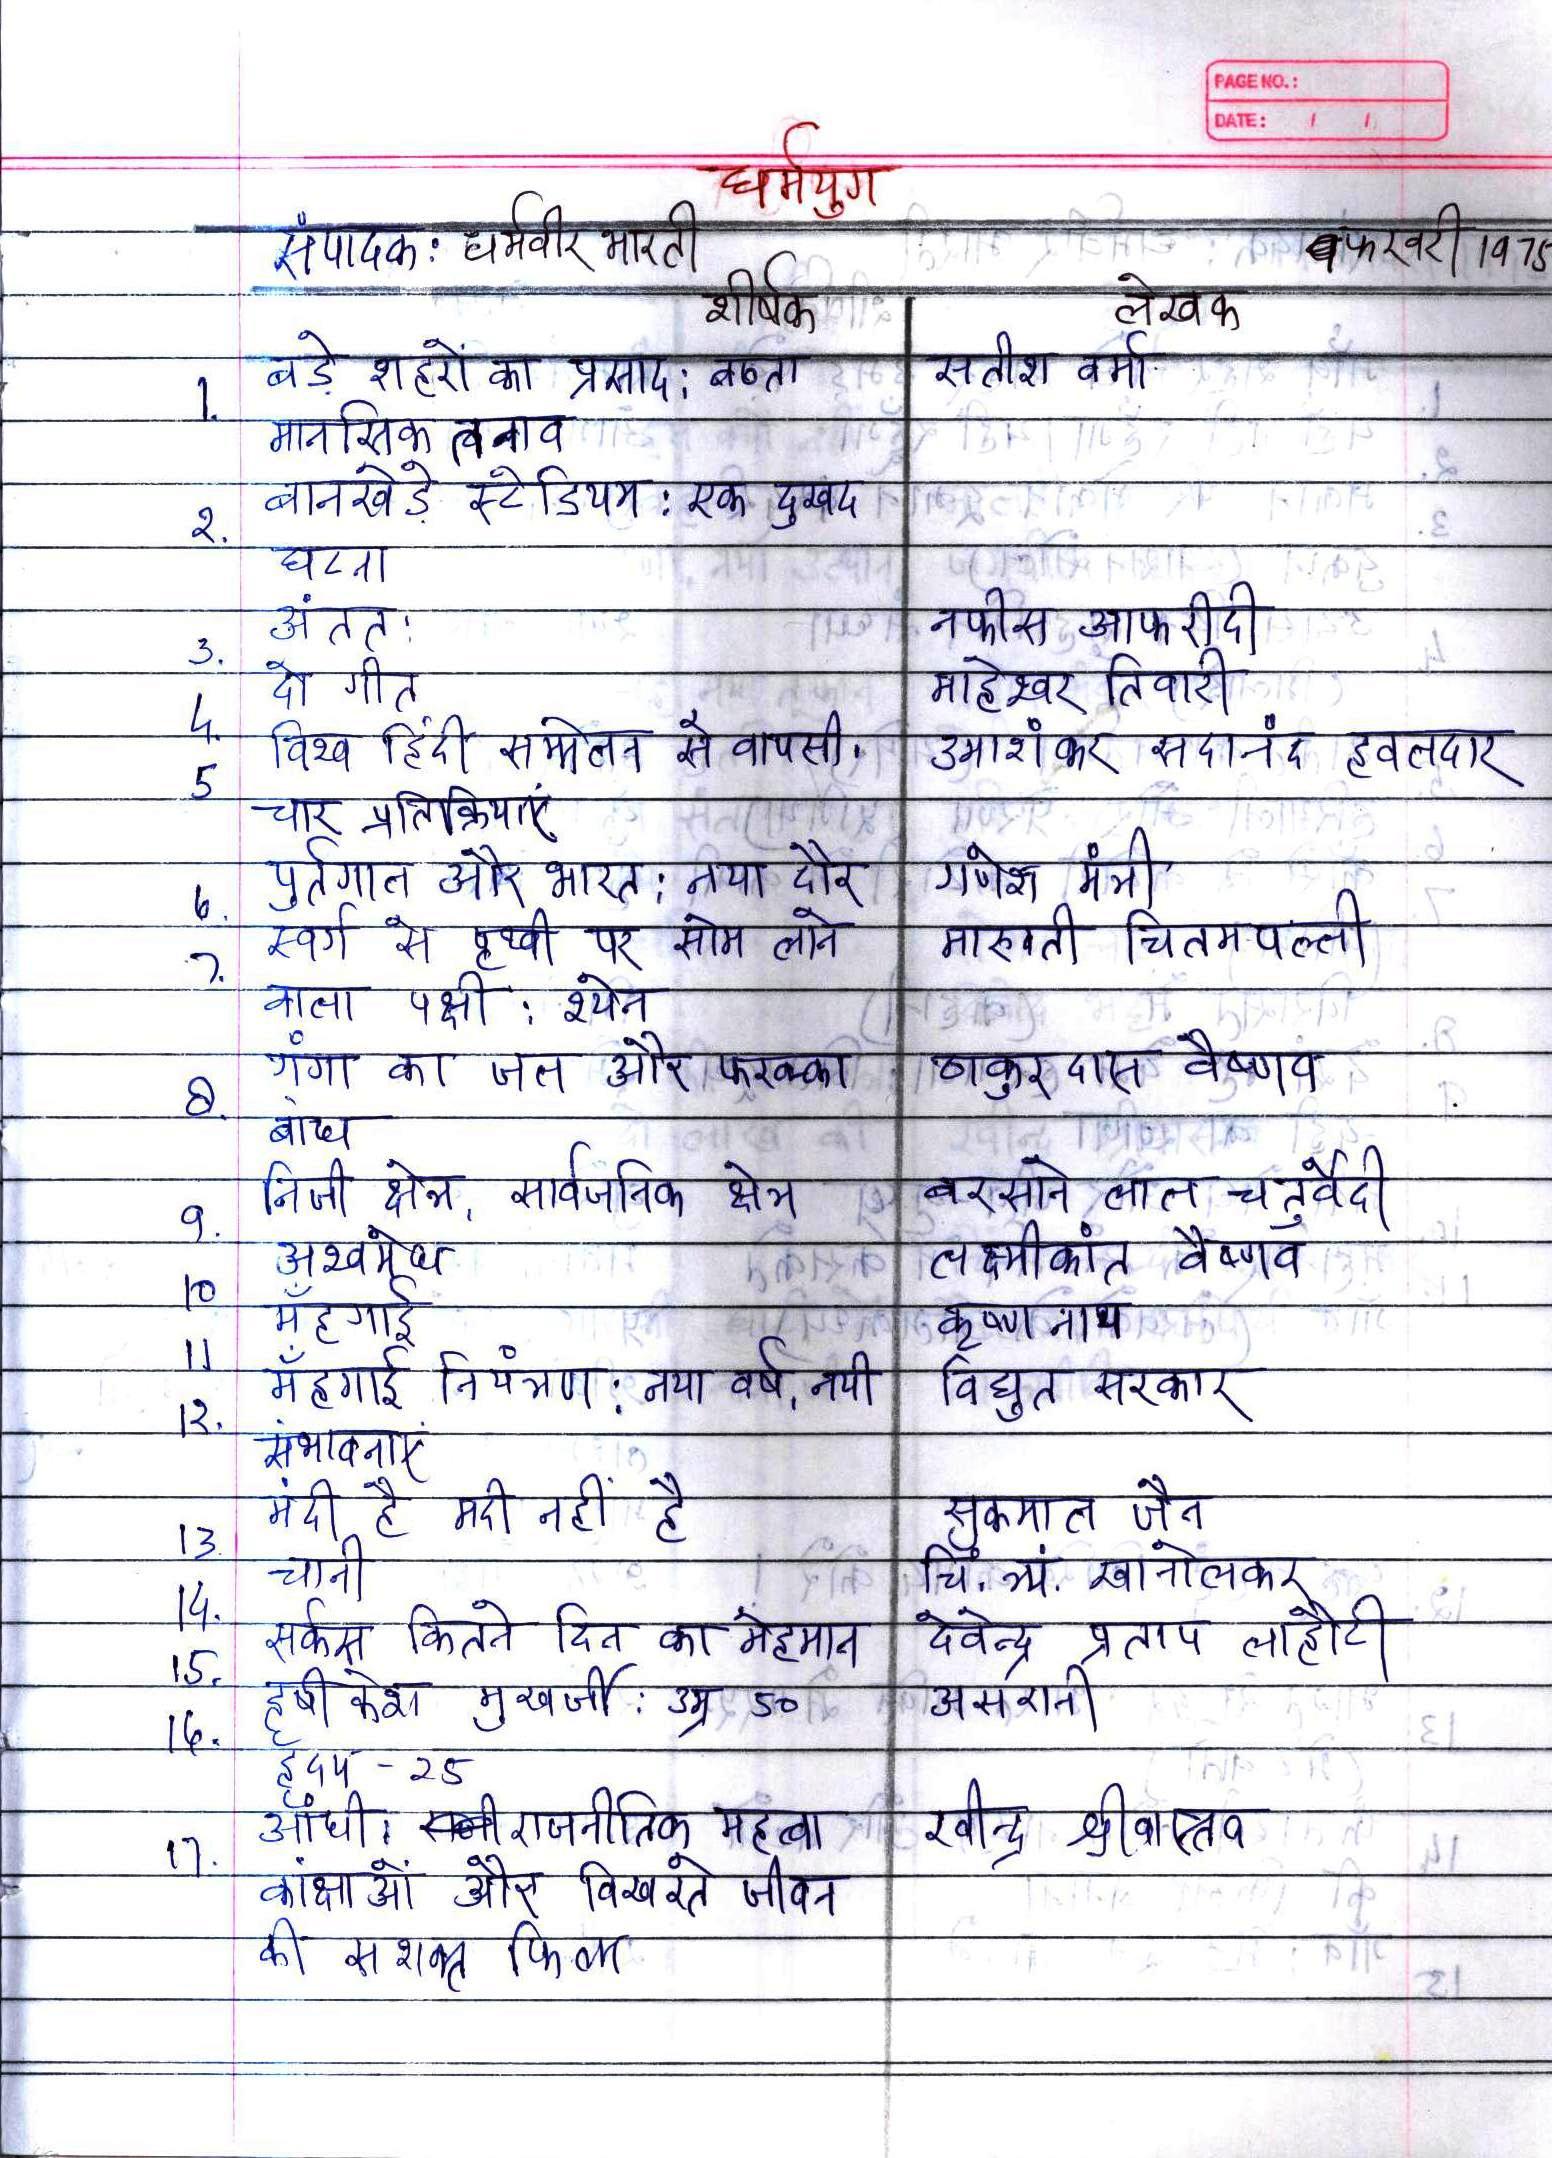 PAGE NO.:
DATE: / /
धर्मयुग
संपादक: धर्मवीर भारती फरवरी 1975
शीर्षक लेखक
1. बडे़ शहरों का प्रसाद: बढता सतीश वर्मा
मानसिक तनाव
2. बानखेडे़ स्टेडियम: एक दुखद
घटना
3. अंतत: नफीस आफरीदी
4. दो गीत माहेश्वर तिवारी
5 विश्व हिंदी सम्मेलन से वापसी. उमाशंकर सदानंद हवलदार
चार प्रतिक्रियाएं
6. पुर्तगाल और भारत: नया दौर गणेश मंत्री
7. स्वर्ग से पृथ्वी पर सोम लाने मारुवती चितमपल्ली
वाला पक्षी: श्येन
8. गंगा का जल और फरक्का ठाकुर दास वैष्णव
बांध
9. निजी क्षेत्र, सार्वजनिक क्षेत्र बरसाने लाल चतुर्वेदी
10 अश्वमेध लक्ष्मीकांत वैष्णव
11 मँहगाई कृष्ण नाथ
12. मँहगाई नियंत्रण: नया वर्ष, नयी विद्युत सरकार
संभावनाएं
13. मंदी है मदी नहीं है सुकमाल जैन
14. चानी चिं. त्र्यं. खानोलकर
15. सर्कस कितने दिन का मेहमान देवेन्द्र प्रताप लाहौटी
16. हृषीकेश मुखर्जी: उम्र 50 असरानी
हृदय - 25
17. आंधी: राजनीतिक महत्वा रवीन्द्र श्रीवास्तव
कांक्षाओं और विखरते जीवन
की सशक्त फिल्म